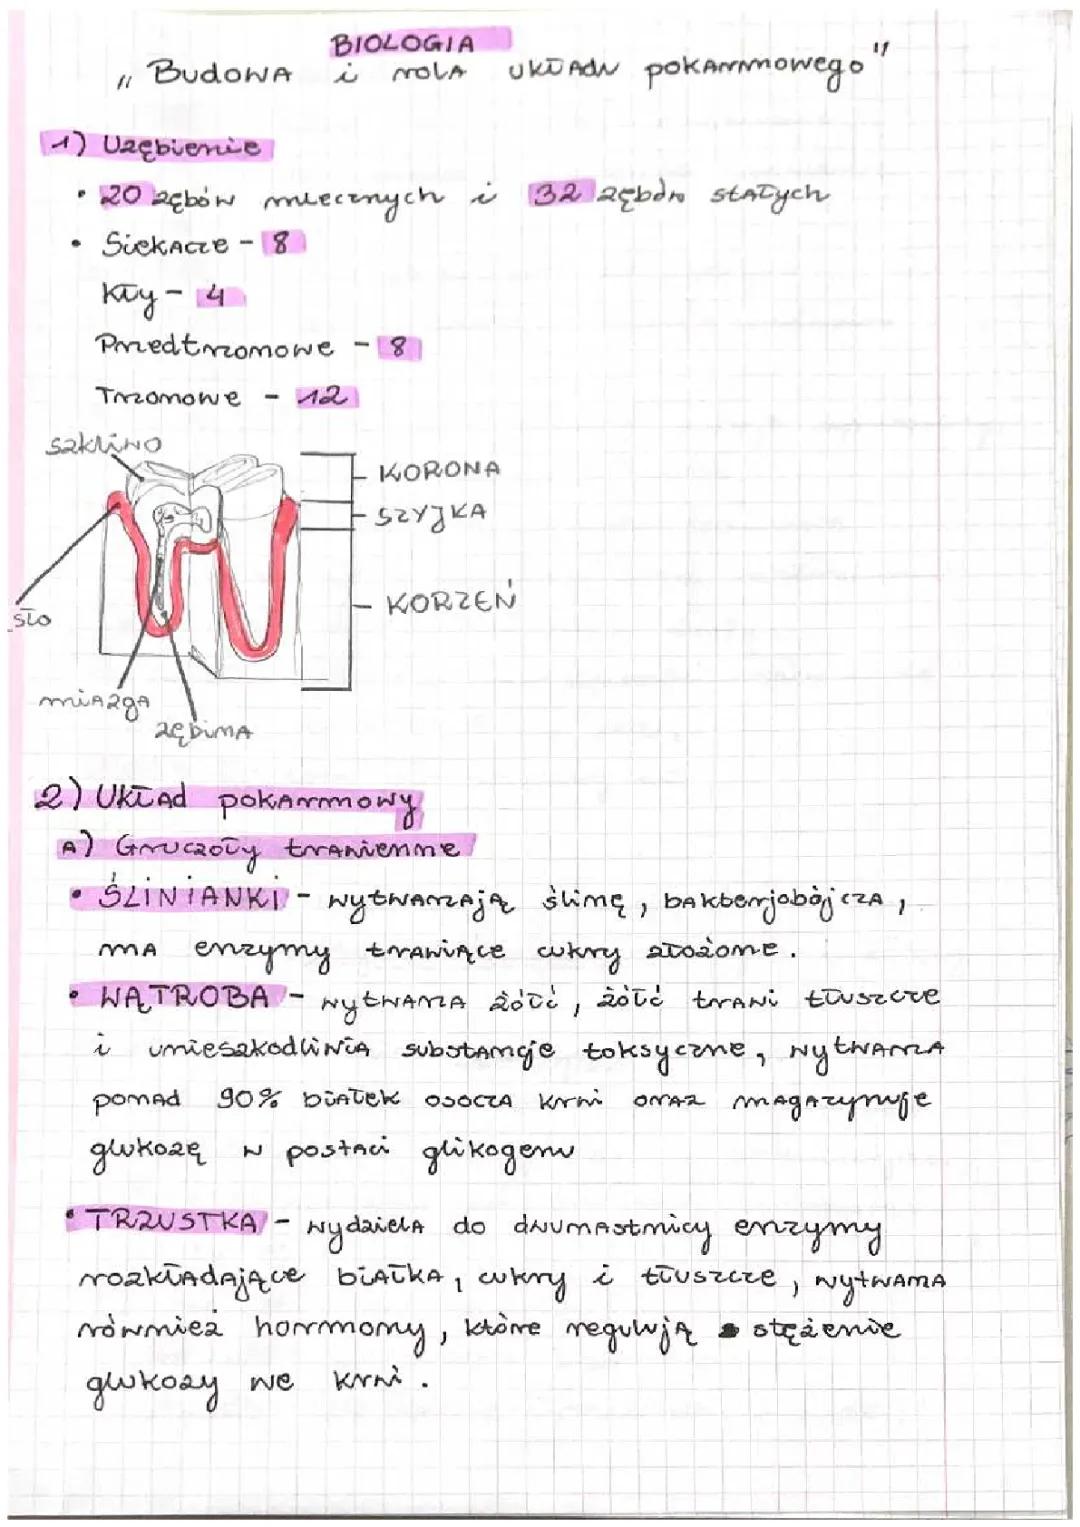 BIOLOGIA
„ Budowa i rola układu pokarmowego "
1) Uzębienie
• 20 zębów mlecznych i 32 zębów stałych
• Siekacze - 8
Kły - 4
Przedtrzonowe - 8
Trzonowe - 12
szkliwo
KORONA
SZYJKA
KORZEŃ
sło
miazga
zębina
2) Układ pokarmowy
A) Gruczoły trawienne
• ŚLINIANKI - wytwarzają ślinę, bakterjobójcza,
ma enzymy trawiące cukry złożone.
• WĄTROBA - wytwarza żółć, żółć trawi tłuszcze
i unieszkodliwia substancje toksyczne, wytwarza
ponad 90% białek osocza krwi oraz magazynuje
glukozę w postaci glikogenu
• TRZUSTKA - wydziela do dwunastnicy enzymy
rozkładające białka, cukry i tłuszcze, wytwarza
również hormony, które regulują stężenie
glukozy we krwi.